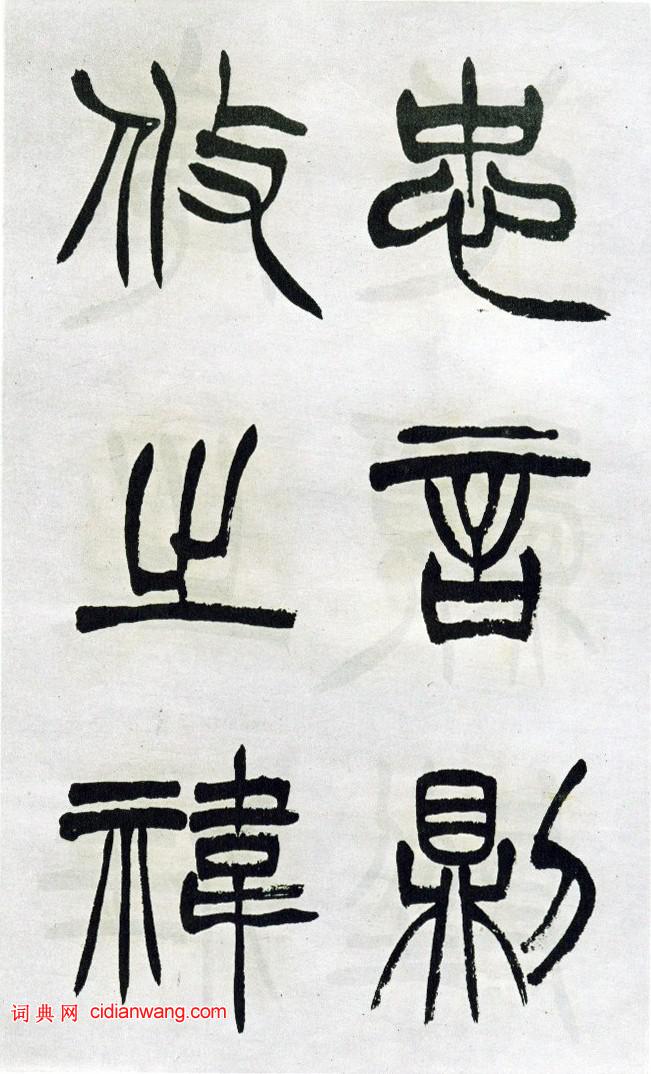 忠言則
攸之禕
词典网 cidianwang.com